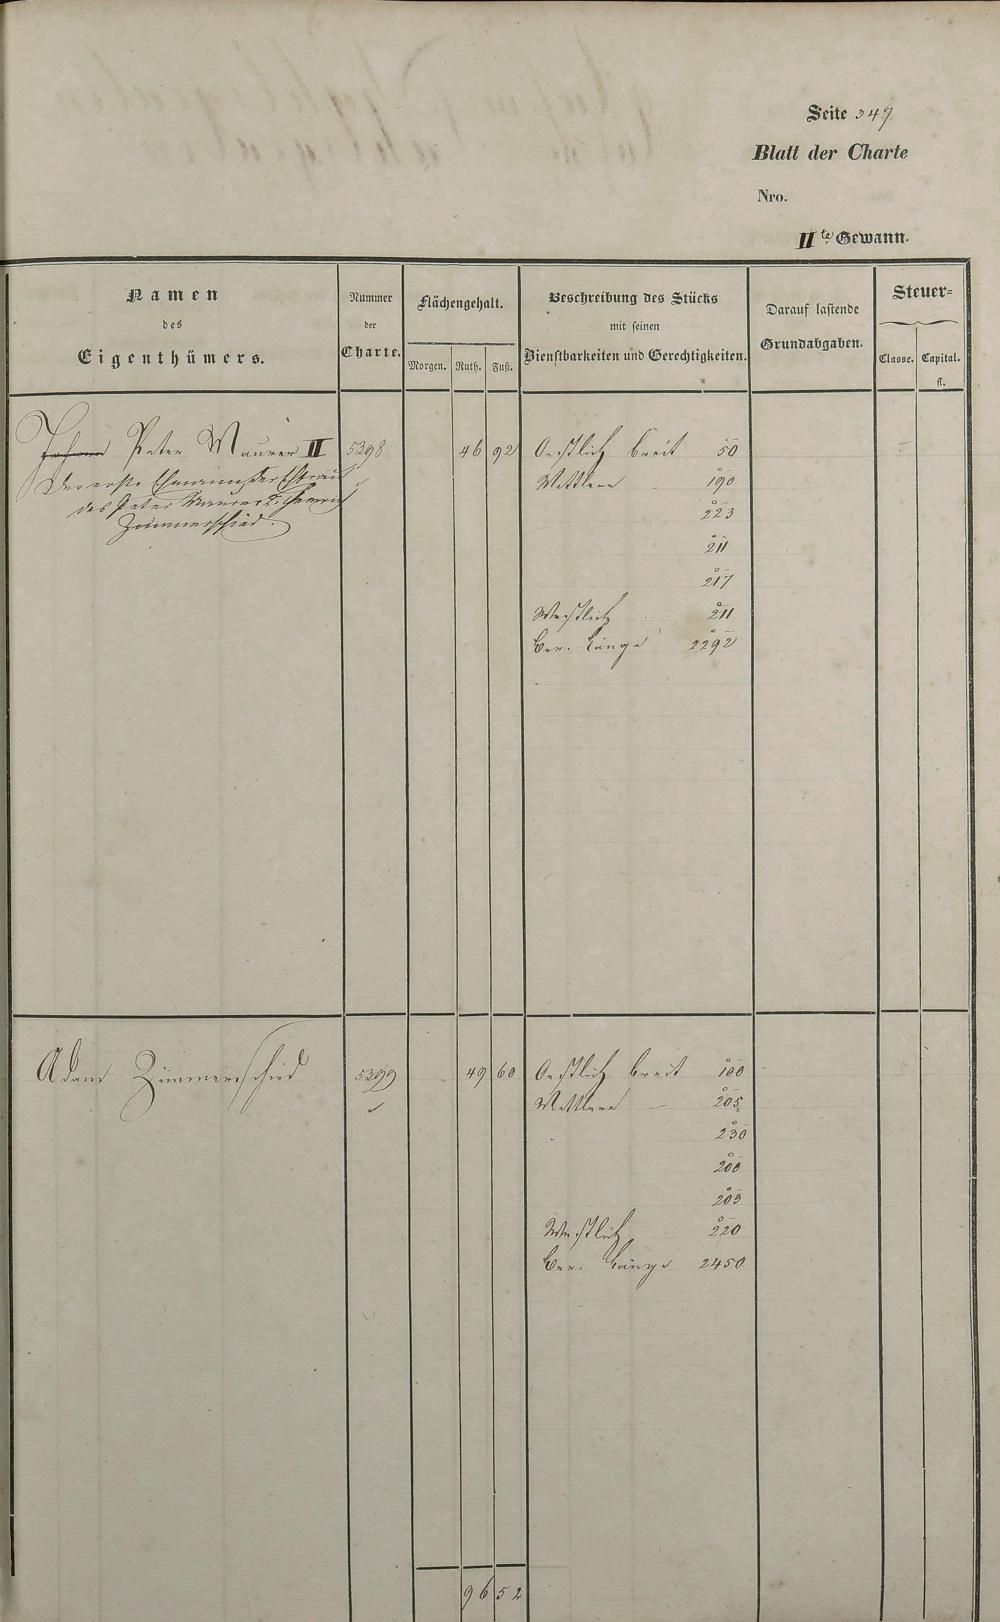 Seite 347
Blatt der Charte
Nro.
IIte Gewann.
Namen
des
Eigenthümers.
Nummer
der
Charte.
Flächengehalt.
Morgen. Ruth. Fuß.
Beschreibung des Stücks
mit seinen
Dienstbarkeiten und Gerechtigkeiten.
Darauf lastende
Grundabgaben.
Steuer-
Classe. Capital.
fl.
Johann Peter Maurer II 5398 46 92 Oestlich breit 50
Der erste Ehemann der Ehefrau
des Peter Maurer Heinrich
Zimmerschied.
Mittlere 190
223
211
217
Westlich 211
Ber. Länge 2292
Adam Zimmerschied 5399 49 60 Oestlich breit 100
Mittlere — 205
230
200
203
Westlich 220
Ber. Länge 2450
96 52